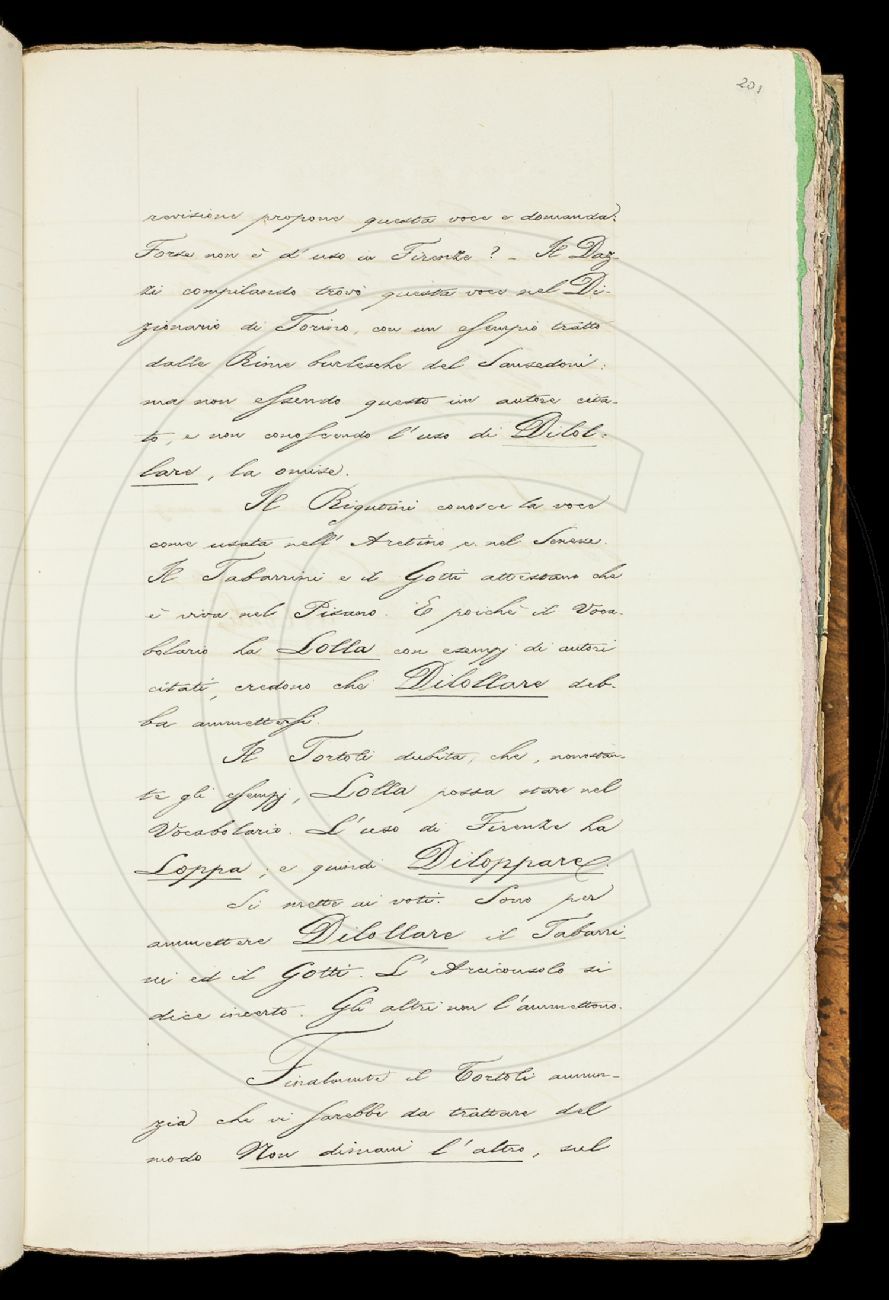 201
revisione propone questa voce e domanda:
Forse non è d'uso in Firenze? - Il Daz-
zi compilando trovò questa voce nel Di-
zionario di Torino, con un esempio tratto
dalle Rime burlesche del Sansedoni:
ma non essendo questo un autore cita-
to, e non conoscendo l'uso di Dilol-
lare, la omise.
Il Rigutini conosce la voce
come usata nell'Aretino e nel Senese.
Il Tabarrini e il Gotti attestano che
è viva nel Pisano. E poichè il Voca-
bolario ha Lolla con esempj di autori
citati, credono che Dilollare deb-
ba ammettersi.
Il Tortoli dubita, che, nonostan-
te gli esempj, Lolla possa stare nel
Vocabolario. L'uso di Firenze ha
Loppa; e quindi Diloppare.
Si mette ai voti. Sono per
ammettere Dilollare il Tabarri-
ni ed il Gotti. L'Arciconsolo si
dice incerto. Gli altri non l'ammettono.
Finalmente il Tortoli annun-
zia che vi sarebbe da trattare del
modo Non dimani l'altro, sul